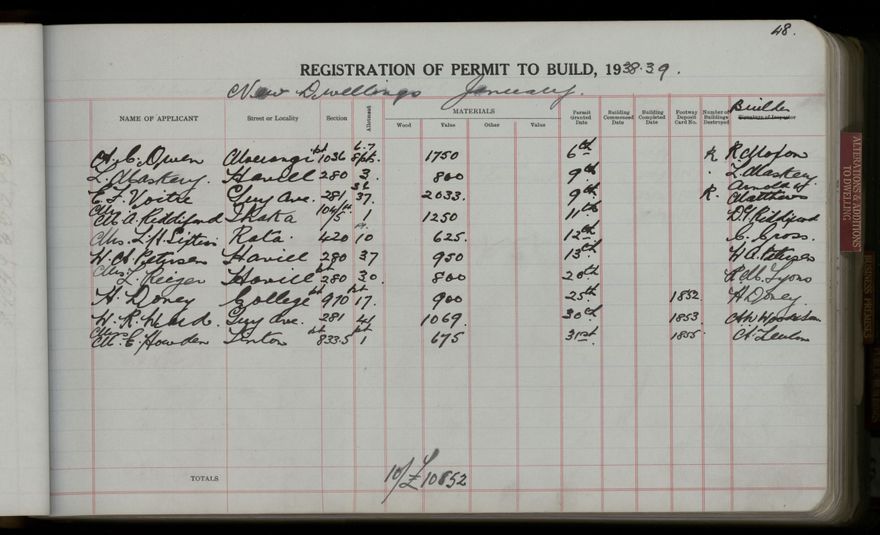 48.
REGISTRATION OF PERMIT TO BUILD, 1938-39.
New Dwellings January.
NAME OF APPLICANT Street or Locality Section Allotment MATERIALS Wood Value Other Value Permit Granted Date Building Commenced Date Building Completed Date Footway Deposit Card No. Number of Buildings Destroyed Builder
A. C. Owen 1036 6-7 8 pt. 1750 6th R
L. Maskery. Havill 280 3 800 9th L. Maskery
E. F. Voitre Guy Ave. 281 37 2033. 9th R. Arnold & Matthews
Mrs M. A. Riddiford 1 1250 11th Riddiford
Mrs. L. H. Rata 420 10 625. 12th C. Cross.
H. A. Petersen Havill 280 37 950 13th H. A. Petersen
Mrs. L. Reiger Havill 280 30 800 20th Lyons
A. Doney College 970 17. 900 25th 1852. A Doney
H. R. Guy Ave. 281 41 1069. 30th 1853
M. E. Howden Linton 833.5 1 675 31st 1855
TOTALS 10/£10852
ALTERATIONS & ADDITIONS TO DWELLING
BUSINESS PREMISES